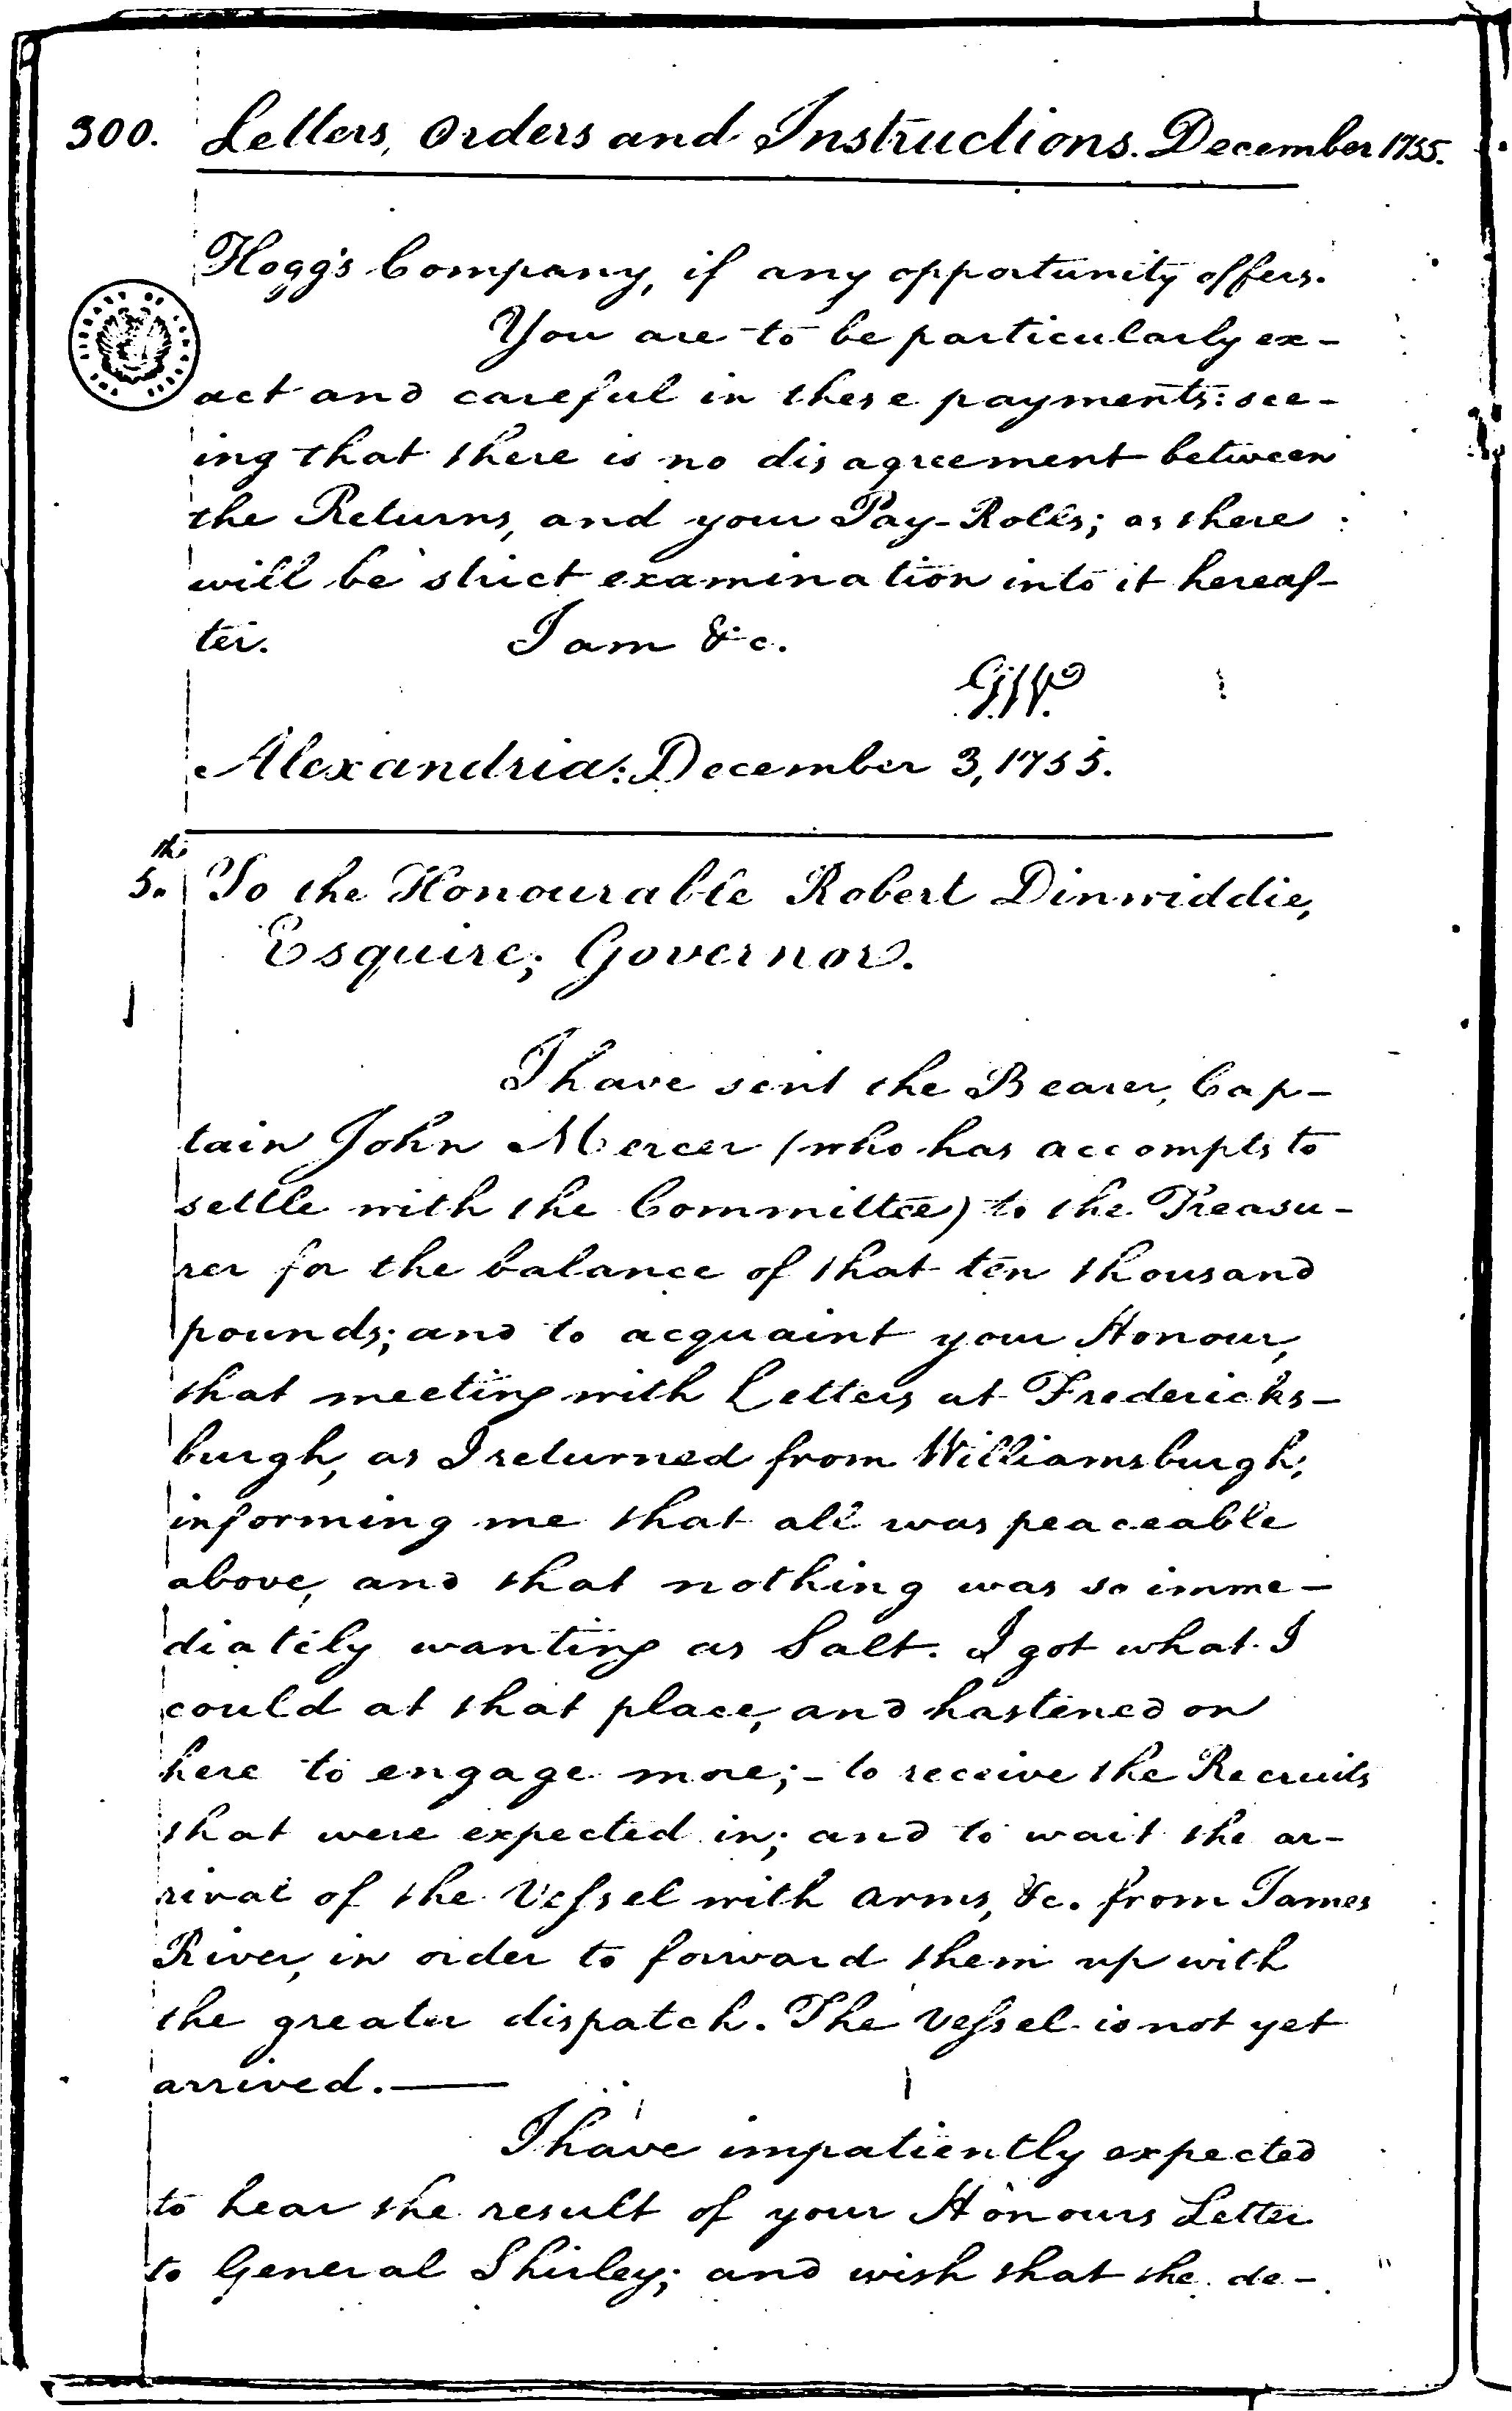 300. Letters, Orders and Instructions. December 1755.
Hogg's Company, if any opportunity offers.
You are to be particularly ex-
act and careful in these payments: see-
ing that there is no disagreement between
the Returns, and your Pay-Rolls; as there
will be strict examination into it hereaf-
ter. I am &c.
G.W.
Alexandria: December 3, 1755.
th
5. To the Honourable Robert Dinwiddie,
Esquire; Governor.
I have sent the Bearer, Cap-
tain John Mercer (who has accompts to
settle with the Committee) to the Treasu-
rer for the balance of that ten thousand
pounds; and to acquaint your Honour,
that meeting with Letters at Fredericks-
burgh, as I returned from Williamsburgh,
informing me that all was peaceable
above, and that nothing was so imme-
diately wanting as Salt. I got what I
could at that place, and hastened on
here to engage more; - to receive the Recruits
that were expected in; and to wait the ar-
rival of the Vessel with arms, &c. from James
River, in order to forward them up with
the greater dispatch. The Vessel is not yet
arrived. —
I have impatiently expected
to hear the result of your Honours Letter
to General Shirley; and wish that the de-